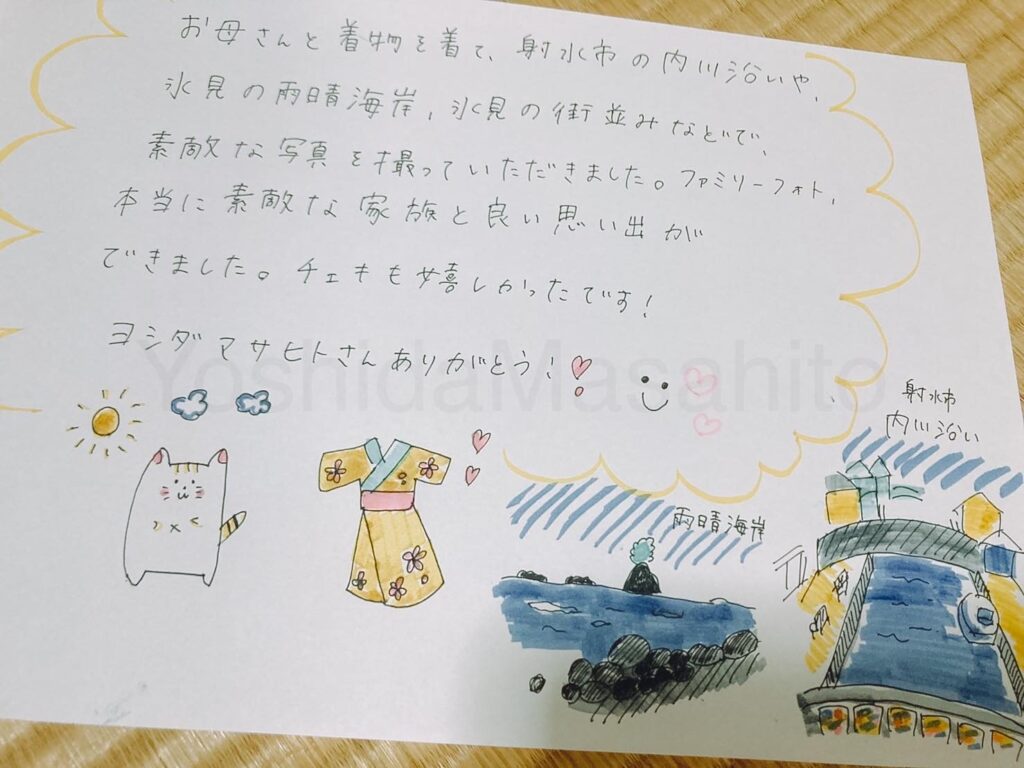 お母さんと着物を着て、射水市の内川沿いや、
氷見の雨晴海岸、氷見の街並みなどで、
素敵な写真を撮っていただきました。ファミリーフォト、
本当に素敵な家族と良い思い出が
できました。チェキも嬉しかったです!
ヨシダマサヒトさんありがとう!
YoshidaMasahito
射水市
内川沿い
雨晴海岸